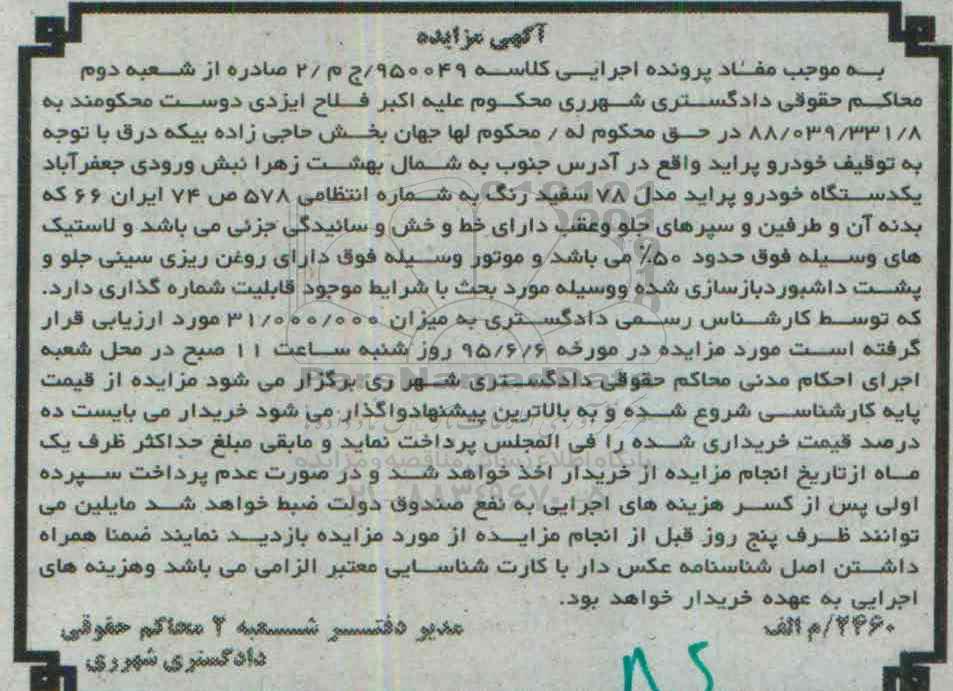 آگهی مزایده
به موجب مفاد پرونده اجرایی کلاسه ۹۵۰۰۴۹/ج م /۲ صادره از شعبه دوم
محاکم حقوقی دادگستری شهرری محکوم علیه اکبر فلاح ایزدی دوست محکومند به
۸۸/۰۳۹/۳۳۱/۸ در حق محکوم له / محکوم لها جهان بخش حاجی زاده بیکه درق با توجه
به توقیف خودرو پراید واقع در آدرس جنوب به شمال بهشت زهرا نبش ورودی جعفرآباد
یکدستگاه خودرو پراید مدل ۷۸ سفید رنگ به شماره انتظامی ۵۷۸ ص ۷۴ ایران ۶۶ که
بدنه آن و طرفین و سپرهای جلو وعقب دارای خط و خش و سائیدگی جزئی می باشد و لاستیک
های وسیله فوق حدود ۵۰٪ می باشد و موتور وسیله فوق دارای روغن ریزی سینی جلو و
پشت داشبوردبازسازی شده ووسیله مورد بحث با شرایط موجود قابلیت شماره گذاری دارد.
که توسط کارشناس رسمی دادگستری به میزان ۳۱/۰۰۰/۰۰۰ مورد ارزیابی قرار
گرفته است مورد مزایده در مورخه ۹۵/۶/۶ روز شنبه ساعت ۱۱ صبح در محل شعبه
اجرای احکام مدنی محاکم حقوقی دادگستری شهر ری برگزار می شود مزایده از قیمت
پایه کارشناسی شروع شده و به بالاترین پیشنهادواگذار می شود خریدار می بایست ده
درصد قیمت خریداری شده را فی المجلس پرداخت نماید و مابقی مبلغ حداکثر ظرف یک
ماه ازتاریخ انجام مزایده از خریدار اخذ خواهد شد و در صورت عدم پرداخت سپرده
اولی پس از کسر هزینه های اجرایی به نفع صندوق دولت ضبط خواهد شد مایلین می
توانند ظرف پنج روز قبل از انجام مزایده از مورد مزایده بازدید نمایند ضمنا همراه
داشتن اصل شناسنامه عکس دار با کارت شناسایی معتبر الزامی می باشد وهزینه های
اجرایی به عهده خریدار خواهد بود.
۲۴۶۰/م الف
مدیر دفتر شعبه ۲ محاکم حقوقی
دادگستری شهرری
ParsNamadData